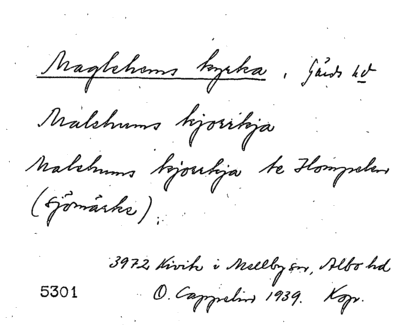 Maglehems kyrka, Gärds hd
Malehums kjorrkja
Malehums kjorrkja te Hompelen
(sjömärke).
3972 Kivik i Mellby sn, Albo hd
5301 O. Cappelin 1939. Kop.